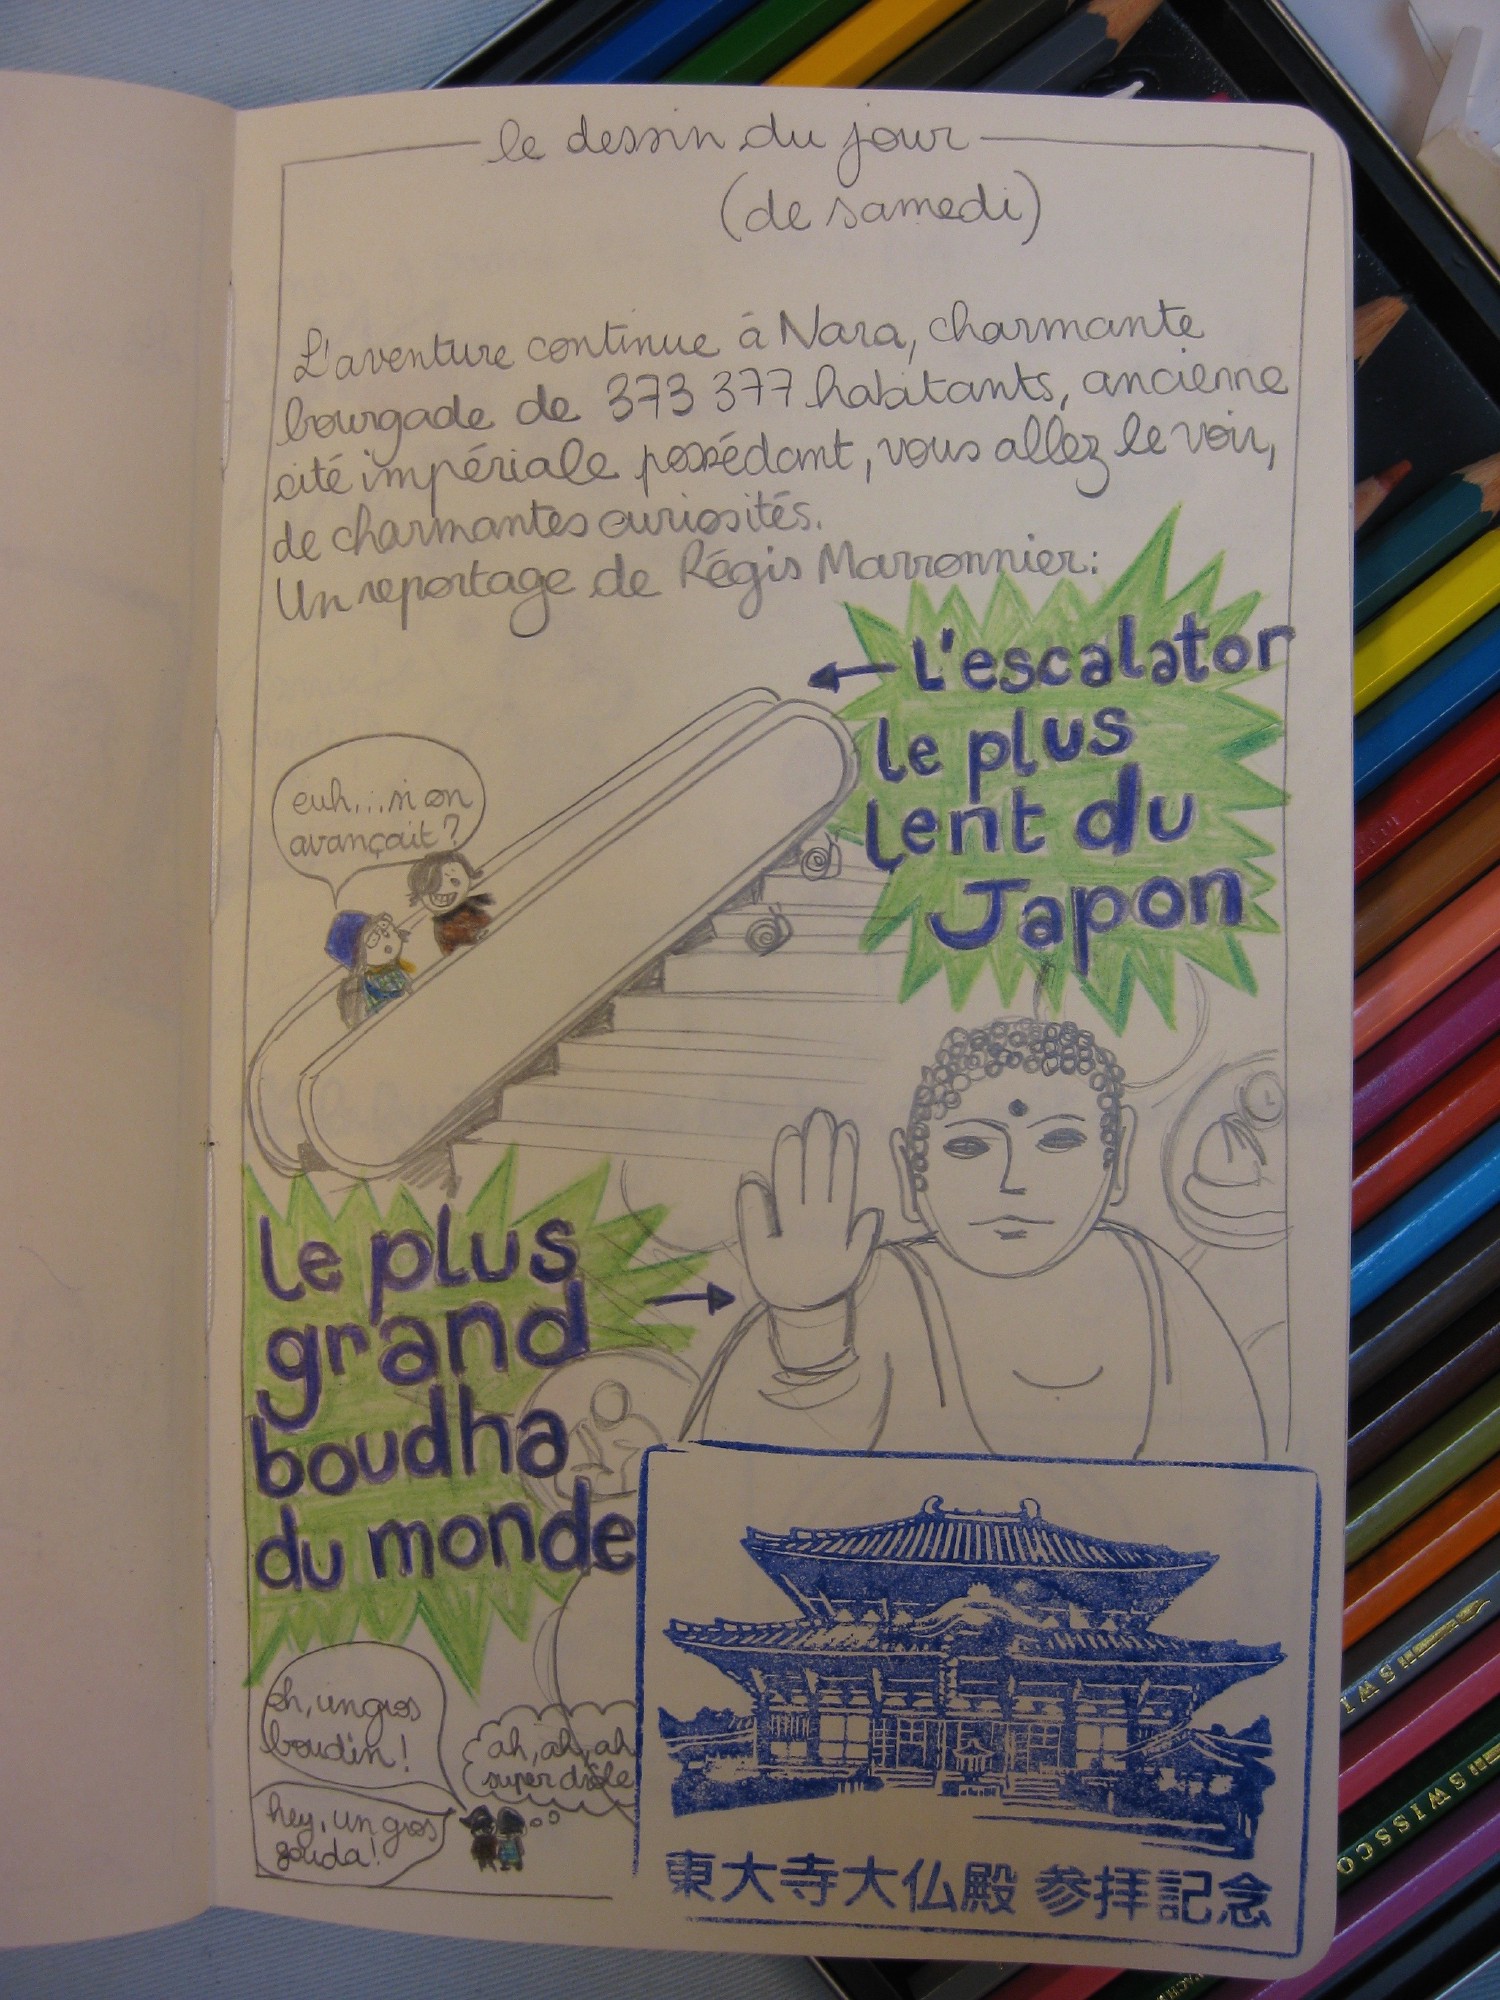 le dessin du jour
(de samedi)
L'aventure continue à Nara, charmante
bourgade de 373 377 habitants, ancienne
cité impériale possédant, vous allez le voir,
de charmantes curiosités.
Un reportage de Régis Marronnier:
L'escalator
le plus
lent du
Japon
euh...si on
avançait?
le plus
grand
boudha
du monde
oh, un gros
boudin!
ah, ah, ah
super drôle
hey, un gros
gouda!
東大寺大仏殿 参拝記念
SWISSCO